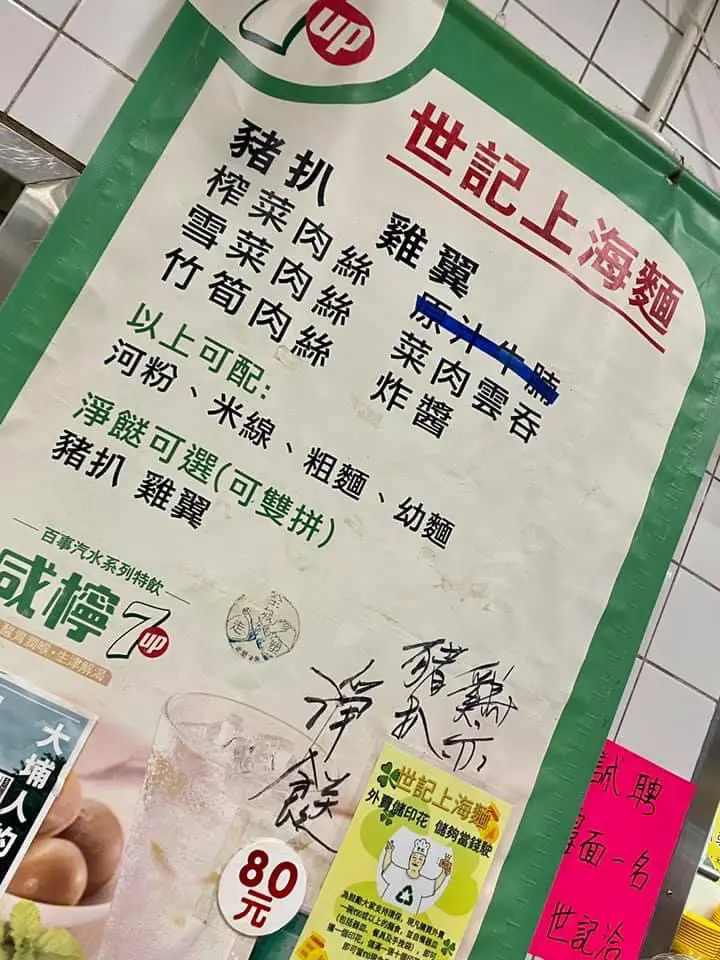 7up
世記上海麵
豬扒
榨菜肉絲
雪菜肉絲
竹筍肉絲
雞翼
原汁牛腩
菜肉雲吞
炸醬
以上可配:
河粉、米線、粗麵、幼麵
淨餸可選(可雙拼)
豬扒 雞翼
百事汽水系列特飲
咸檸7up
生津解渴
淨餸
豬扒
80元
大埔人的
世記上海麵
外賣儲印花 儲夠當錢駛
誠聘
面一名
世記洽